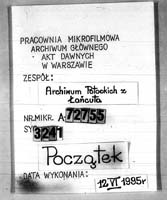 PRACOWNIA MIKROFILMOWA
ARCHIWUM GŁÓWNEGO
AKT DAWNYCH
W WARSZAWIE
ZESPÓŁ:
Archiwum Potockich z
Łańcuta
NR.MIKR. A: 72755
SY 3241
Początek
DATA WYKONANIA:
12 VI 1985r